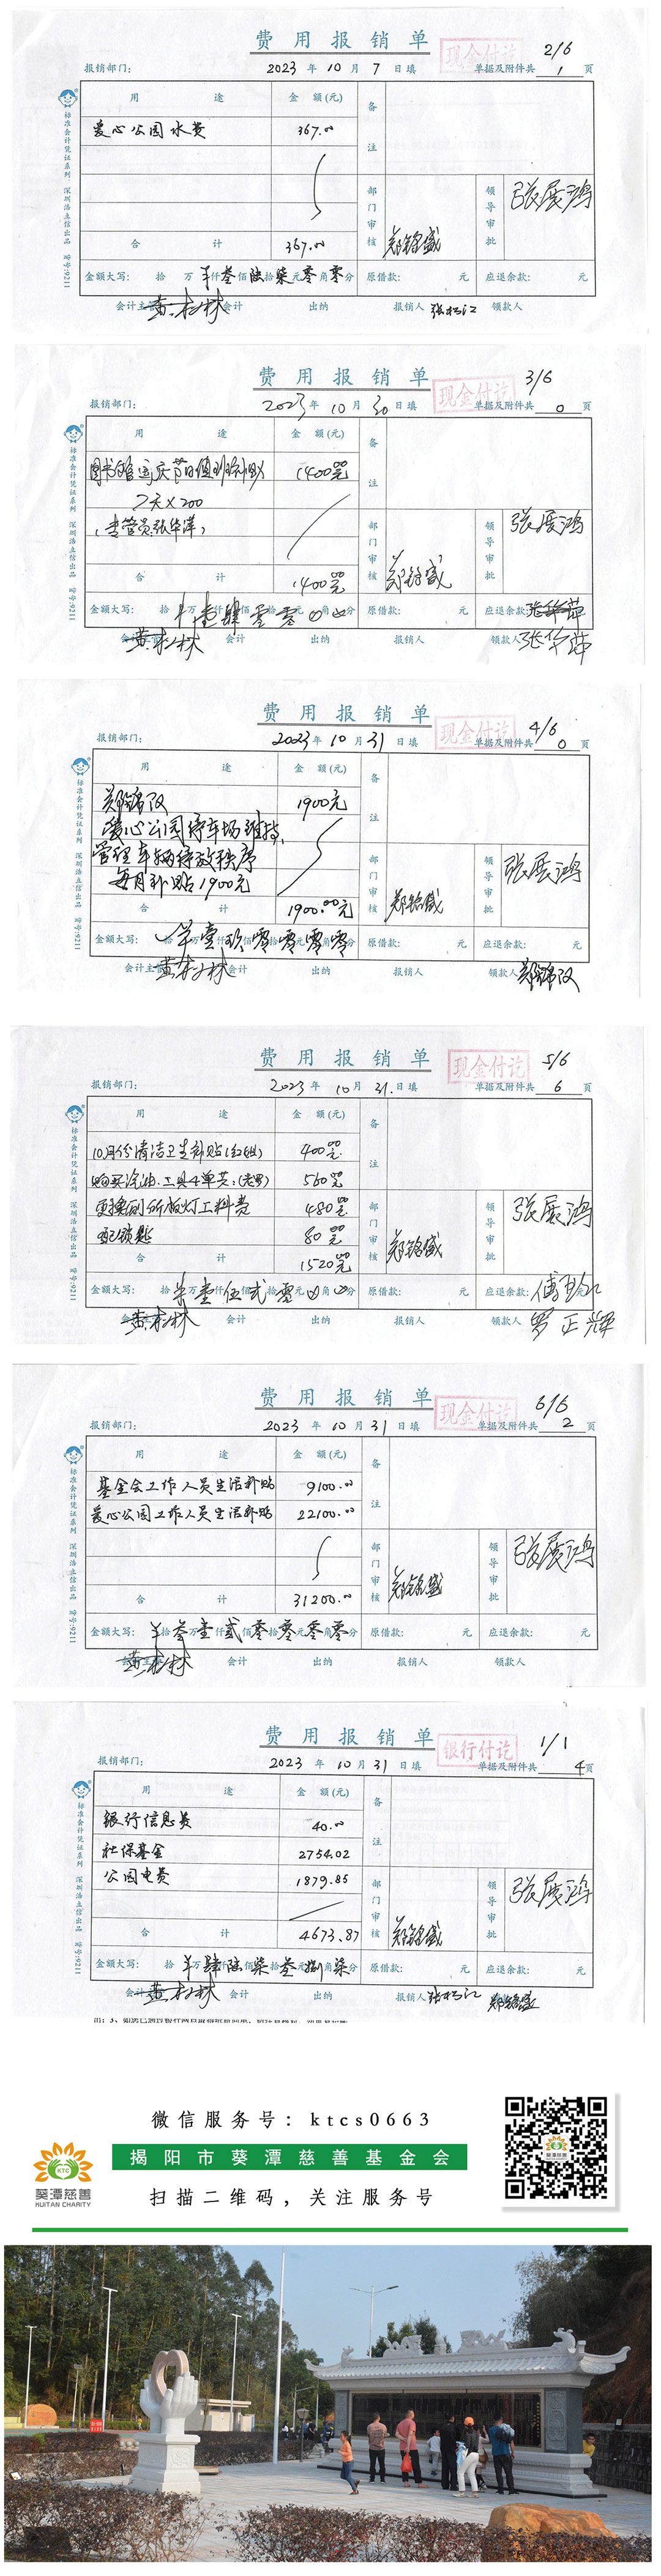 费用报销单
现金付讫
2/6
报销部门:
2023 年 10 月 7 日填
单据及附件共 1 页
用 途
金 额(元)
备注
爱心公园水费
367.00
部门审核
郑铭盛
领导审批
张展鸿
合 计
367.00
金额大写: 拾 万 羊仟叁佰陆拾柒元零角零分
原借款: 元
应退余款: 元
会计主管
会计
出纳
报销人
领款人
标准会计凭证系列 深圳浩立信出品 货号:9211
费用报销单
现金付讫
3/6
报销部门:
2023 年 10 月 30 日填
单据及附件共 0 页
用 途
金 额(元)
备注
1400元
7天×200
部门审核
郑铭盛
领导审批
张展鸿
合 计
1400元
金额大写:
原借款: 元
应退余款:
会计主管
会计
出纳
报销人
领款人 张华萍
标准会计凭证系列 深圳浩立信出品 货号:9211
费用报销单
现金付讫
4/6
报销部门:
2023 年 10 月 31 日填
单据及附件共 0 页
用 途
金 额(元)
备注
1900元
爱心公园停车场维持,
管理车辆停放秩序
每月补贴1900元
部门审核
郑铭盛
领导审批
张展鸿
合 计
1900.00元
金额大写: 拾 万 羊仟壹玖零零零零
原借款: 元
应退余款: 元
会计主管
会计
出纳
报销人
领款人
标准会计凭证系列 深圳浩立信出品 货号:9211
费用报销单
现金付讫
5/6
报销部门:
2023 年 10 月 31 日填
单据及附件共 6 页
用 途
金 额(元)
备注
10月份清洁卫生补贴
400元
购买汽油.工具4单共:
560元
更换厕所板灯工料费
480元
配锁匙
80元
部门审核
郑铭盛
领导审批
张展鸿
合 计
1520元
金额大写:
原借款: 元
应退余款: 元
会计主管
会计
出纳
报销人
领款人 罗正辉
标准会计凭证系列 深圳浩立信出品 货号:9211
费用报销单
现金付讫
6/6
报销部门:
2023 年 10 月 31 日填
单据及附件共 2 页
用 途
金 额(元)
备注
基金会工作人员生活补贴
9100.00
爱心公园工作人员生活补贴
22100.00
部门审核
郑铭盛
领导审批
张展鸿
合 计
31200.00
金额大写: 拾 羊叁万壹仟贰佰零拾零元零角零分
原借款: 元
应退余款: 元
会计主管
会计
出纳
报销人
领款人
标准会计凭证系列 深圳浩立信出品 货号:9211
费用报销单
银行付讫
1/1
报销部门:
2023 年 10 月 31 日填
单据及附件共 4 页
用 途
金 额(元)
备注
银行信息费
40.00
社保基金
2754.02
公园电费
1879.85
部门审核
郑铭盛
领导审批
张展鸿
合 计
4673.87
金额大写: 拾 羊万肆仟陆佰柒拾叁元捌角柒分
原借款: 元
应退余款: 元
会计主管
会计
出纳
报销人
郑铭盛
标准会计凭证系列 深圳浩立信出品 货号:9211
微信服务号: ktcs0663
揭阳市葵潭慈善基金会
扫描二维码,关注服务号
KTC
葵潭慈善
HUITAN CHARITY